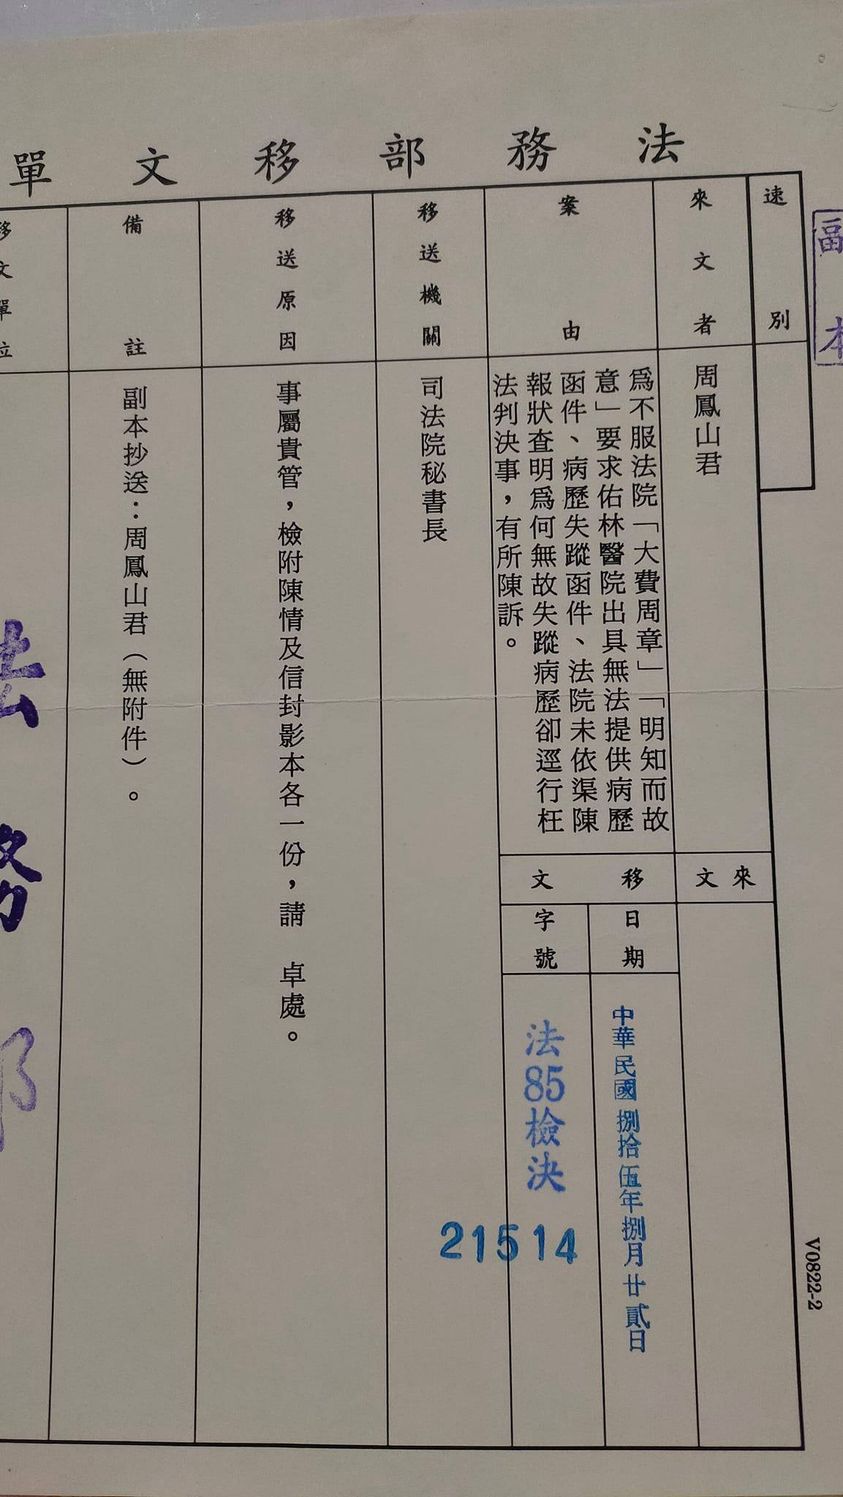 法務部移文單
副本
速別
來文者
周鳳山君
來文
案由
爲不服法院「大費周章」「明知而故
意」要求佑林醫院出具無法提供病歷
函件、病歷失蹤函件、法院未依渠陳
報狀查明爲何無故失蹤病歷卻逕行枉
法判決事，有所陳訴。
移文
日期
中華民國捌拾伍年捌月廿貳日
字號
法85檢決
21514
移送機關
司法院秘書長
移送原因
事屬貴管，檢附陳情及信封影本各一份，請　卓處。
備註
副本抄送：周鳳山君（無附件）。
移文單位
法務部
V0822-2